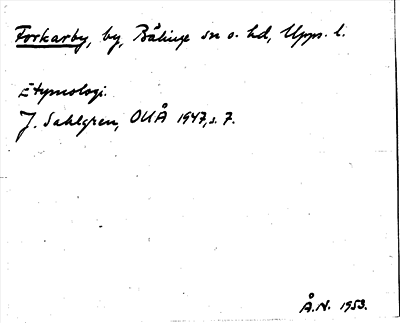 Forkarby, by, Bälinge sn o. hd, Upps. l.
Etymologi.
J. Sahlgren, OUÅ 1947, s. 7.
Å.N. 1953.